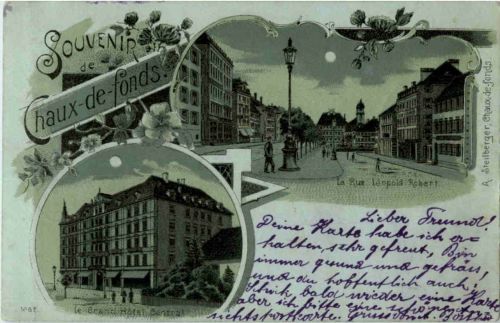 SOUVENIR
de
Chaux-de-fonds.
La Rue Léopold Robert
A. Steilberger, Chaux-de-fonds.
Le Grand Hôtel Central
Lieber Freund!
Deine Karte habe ich er-
halten, sehr gefreut, Bin
immer gesund und
und du hoffentlich auch.
Schik bald wieder, eine Karte
aber ich bitte eine
sichtspostkarte.